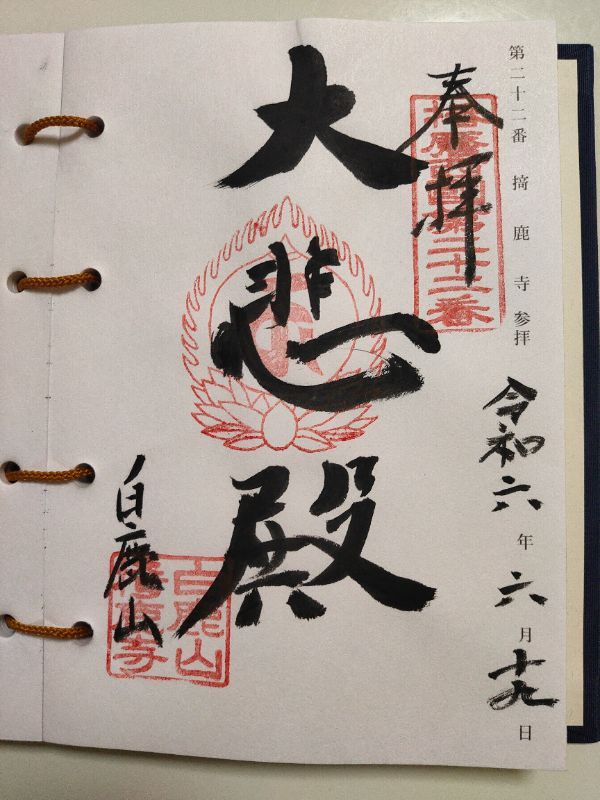 第二十二番 掎鹿寺参拝
令和六年六月十九日
奉拝
播磨西国第二十二番
大悲殿
白鹿山
白鹿山
掎鹿寺